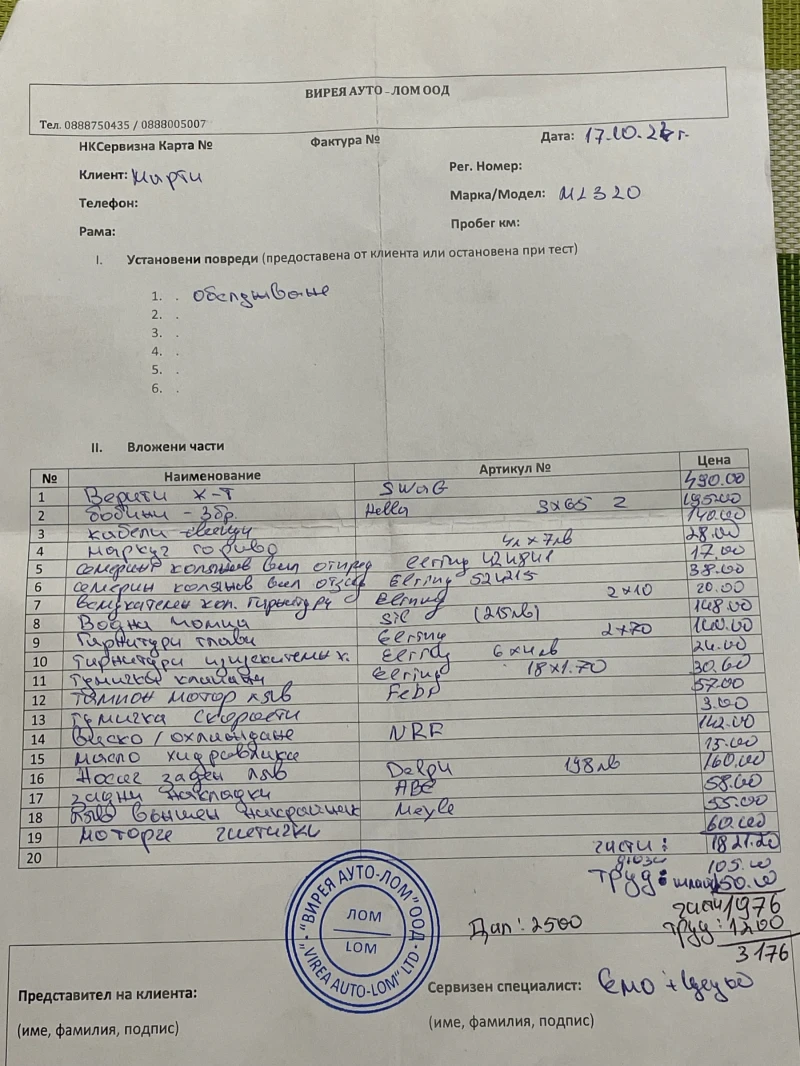 ВИРЕЯ АУТО - ЛОМ ООД
Тел. 0888750435 / 0888005007
НКСервизна Карта № Фактура № Дата: 17.10.22 г.
Клиент: Марти Рег. Номер:
Телефон: Марка/Модел: ML320
Рама: Пробег км:
I. Установени повреди (предоставена от клиента или остановена при тест)
1. . обслужване
2. .
3. .
4. .
5. .
6. .
II. Вложени части
№ Наименование Артикул № Цена
1 Вериги к-т SWAG 490.00
2 бобини - 3бр. Hella 3x65 195.00
3 кабели свещи 140.00
4 маркуч гориво 4л x 7лв 28.00
5 семеринг колянов вал отпред Elring 424841 17.00
6 семеринг колянов вал отзад Elring 524215 38.00
7 всмукателен кол. гарнитури Elring 2x10 20.00
8 Водна помпа Sil (215лв) 148.00
9 Гарнитури глави Elring 2x70 140.00
10 гарнитури изпускателен к. Elring 6x4лв 24.00
11 гумички клапани Elring 18x1.70 30.60
12 тампон мотор ляв Febi 57.00
13 гумичка скорости 3.00
14 Виско / охлаждане NRF 142.00
15 масло хидравлика 15.00
16 Носач заден ляв Delphi 198лв 160.00
17 задни накладки ABE 58.00
18 ляв външен накрайник Meyle 55.00
19 моторче 60.00
20 части: 1821.20
дюзи 105.00
труд: 50.00
части 1976
Дал: 2500 труд: 1200
3176
"ВИРЕЯ АУТО-ЛОМ" ООД
ЛОМ
LOM
"VIREA AUTO-LOM" LTD
Представител на клиента: Сервизен специалист: Емо +
(име, фамилия, подпис) (име, фамилия, подпис)